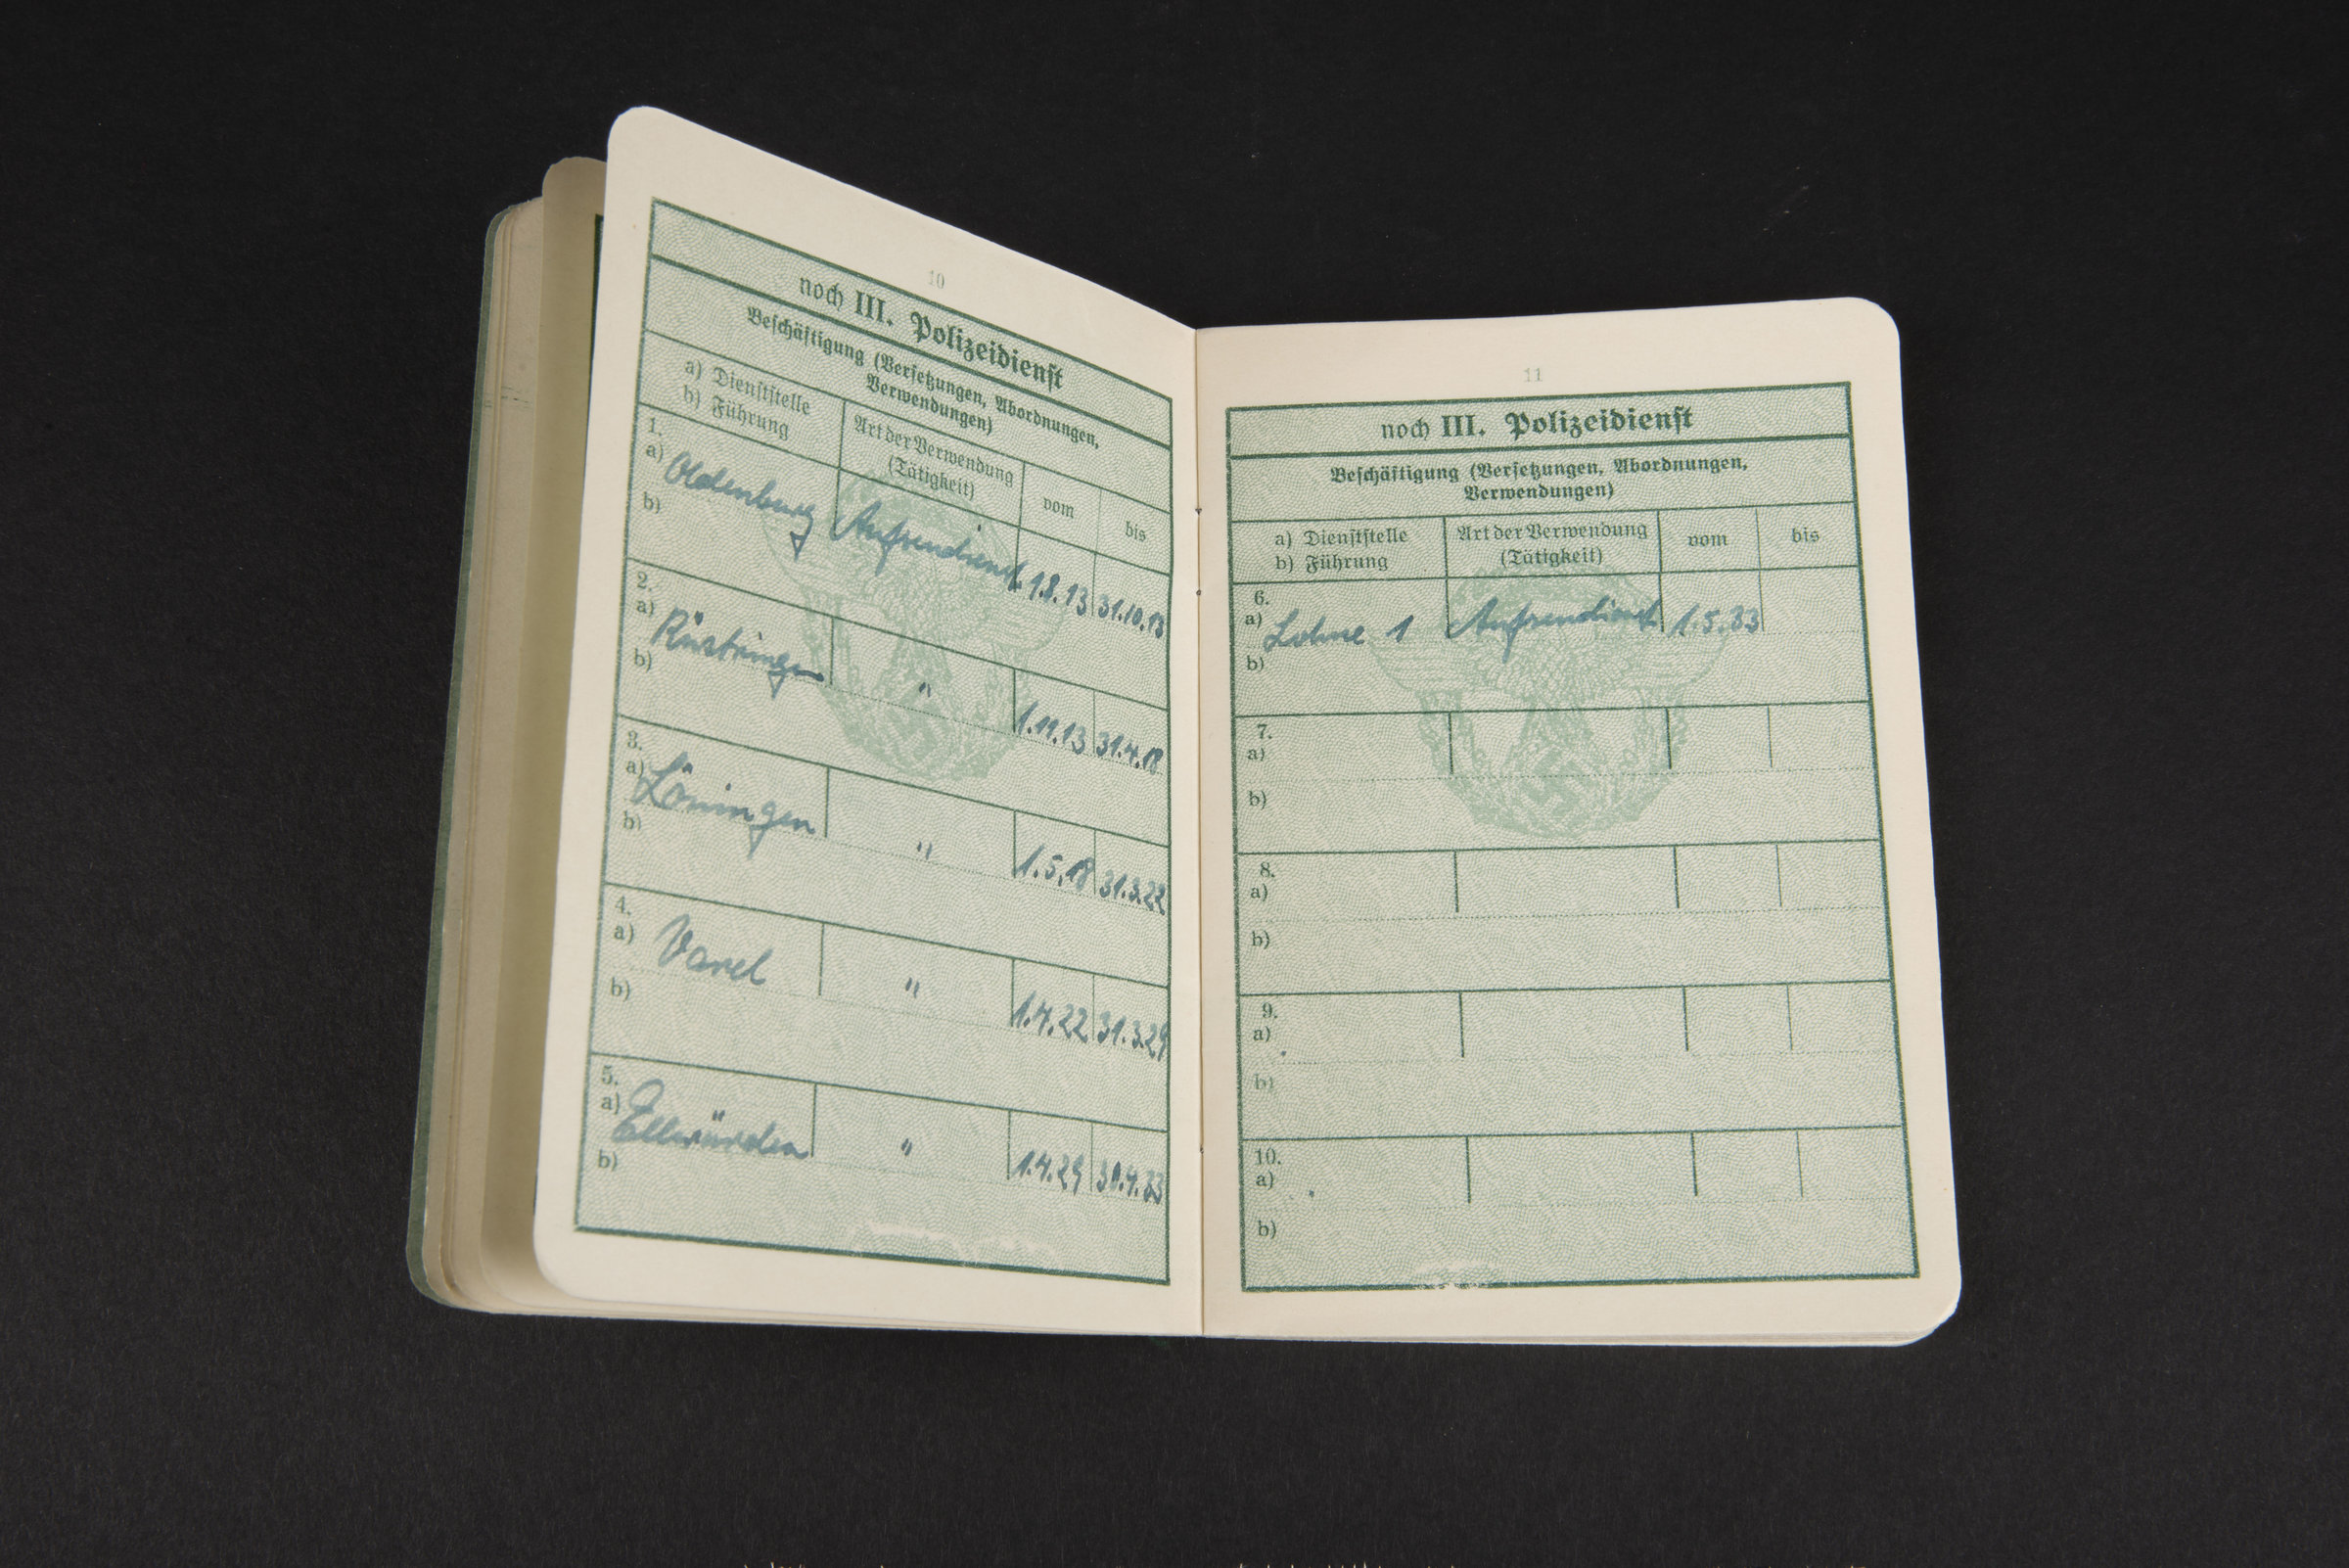 10
noch III. Polizeidienst
Beschäftigung (Versetzungen, Abordnungen,
Verwendungen)
a) Dienststelle
b) Führung
Art der Verwendung
(Tätigkeit)
vom
bis
1.
a) Oldenburg Aussendienst 1.8.13 31.10.13
b)
2.
a) Rüstringen " 1.11.13 31.4.18
b)
3.
a) Löningen " 1.5.18 31.3.22
b)
4.
a) Varel " 1.4.22 31.3.29
b)
5.
a) Ellwürden " 1.4.29 30.4.33
b)
11
noch III. Polizeidienst
Beschäftigung (Versetzungen, Abordnungen,
Verwendungen)
a) Dienststelle
b) Führung
Art der Verwendung
(Tätigkeit)
vom
bis
6.
a) Lohne 1 Aussendienst 1.5.33
b)
7.
a)
b)
8.
a)
b)
9.
a)
b)
10.
a)
b)